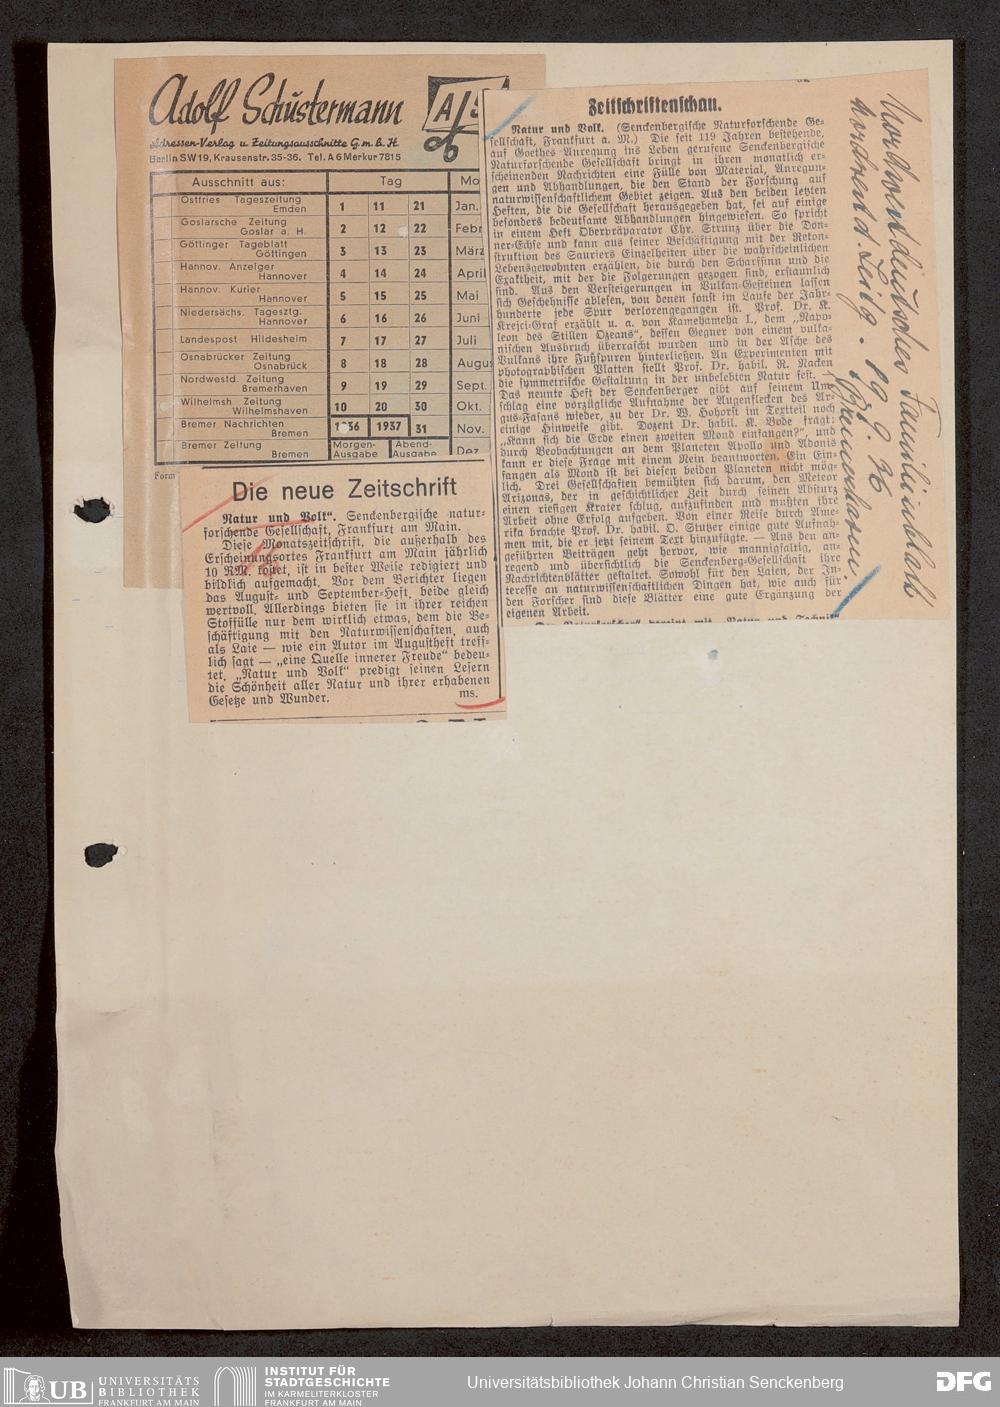 Adolf Schustermann
Adressen-Verlag u. Zeitungsausschnitte G.m.b.H.
Berlin SW19, Krausenstr. 35-36. Tel. A6 Merkur 7815
Ausschnitt aus: Tag Mo
Ostfries Tageszeitung Emden 1 11 21 Jan.
Goslarsche Zeitung Goslar a. H. 2 12 22 Febr
Göttinger Tageblatt Göttingen 3 13 23 März
Hannov. Anzeiger Hannover 4 14 24 April
Hannov. Kurier Hannover 5 15 25 Mai
Niedersächs. Tagesztg. Hannover 6 16 26 Juni
Landespost Hildesheim 7 17 27 Juli
Osnabrücker Zeitung Osnabrück 8 18 28 Augu
Nordwestd. Zeitung Bremerhaven 9 19 29 Sept.
Wilhelmsh Zeitung Wilhelmshaven 10 20 30 Okt.
Bremer Nachrichten Bremen 1936 1937 31 Nov.
Bremer Zeitung Bremen Morgen-Ausgabe Abend-Ausgabe Dez
Form
Die neue Zeitschrift
„Natur und Volk“. Senckenbergische natur-
forschende Gesellschaft, Frankfurt am Main.
Diese Monatszeitschrift, die außerhalb des
Erscheinungsortes Frankfurt am Main jährlich
10 RM. kostet, ist in bester Weise redigiert und
bildlich aufgemacht. Vor dem Berichter liegen
das August- und September-Heft, beide gleich
wertvoll. Allerdings bieten sie in ihrer reichen
Stoffülle nur dem wirklich etwas, dem die Be-
schäftigung mit den Naturwissenschaften, auch
als Laie — wie ein Autor im Augustheft treff-
lich sagt — „eine Quelle innerer Freude“ bedeu-
tet. „Natur und Volk“ predigt seinen Lesern
die Schönheit aller Natur und ihrer erhabenen
Gesetze und Wunder. ms.
Zeitschriftenschau.
Natur und Volk. (Senckenbergische Naturforschende Ge-
sellschaft, Frankfurt a. M.) Die seit 119 Jahren bestehende,
auf Goethes Anregung ins Leben gerufene Senckenbergische
Naturforschende Gesellschaft bringt in ihren monatlich er-
scheinenden Nachrichten eine Fülle von Material, Anregun-
gen und Abhandlungen, die den Stand der Forschung auf
naturwissenschaftlichem Gebiet zeigen. Aus den beiden letzten
Heften, die die Gesellschaft herausgegeben hat, sei auf einige
besonders bedeutsame Abhandlungen hingewiesen. So spricht
in einem Heft Oberpräparator Chr. Strunz über die Don-
ner-Echse und kann aus seiner Beschäftigung mit der Rekon-
struktion des Sauriers Einzelheiten über die wahrscheinlichen
Lebensgewohnten erzählen, die durch den Scharfsinn und die
Exaktheit, mit der die Folgerungen gezogen sind, erstaunlich
sind. Aus den Versteigerungen in Vulkan-Gesteinen lassen
sich Geschehnisse ablesen, von denen sonst im Laufe der Jahr-
hunderte jede Spur verlorengegangen ist. Prof. Dr. K.
Krejci-Graf erzählt u. a. von Kamehameha I., dem „Napo-
leon des Stillen Ozeans“, dessen Gegner von einem vulka-
nischen Ausbruch überrascht wurden und in der Asche des
Vulkans ihre Fußspuren hinterließen. An Experimenten mit
photographischen Platten stellt Prof. Dr. habil. R. Nacken
die symmetrische Gestaltung in der unbelebten Natur fest. —
Das neunte Heft der Senckenberger gibt auf seinem Um-
schlag eine vorzügliche Aufnahme der Augenflecken des Ar-
gus-Fasans wieder, zu der Dr. W. Hohorst im Textteil noch
einige Hinweise gibt. Dozent Dr. habil. K. Bode fragt:
„Kann sich die Erde einen zweiten Mond einfangen?“, und
durch Beobachtungen an dem Planeten Apollo und Adonis
kann er diese Frage mit einem Nein beantworten. Ein Ein-
fangen als Mond ist bei diesen beiden Planeten nicht mög-
lich. Drei Gesellschaften bemühten sich darum, den Meteor
Arizonas, der in geschichtlicher Zeit durch seinen Absturz
einen riesigen Krater schlug, aufzufinden und mußten ihre
Arbeit ohne Erfolg aufgeben. Von einer Reise durch Ame-
rika brachte Prof. Dr. habil. O. Stutzer einige gute Aufnah-
men mit, die er jetzt seinem Text hinzufügte. — Aus den an-
geführten Beiträgen geht hervor, wie mannigfaltig, an-
regend und übersichtlich die Senckenberg-Gesellschaft ihre
Nachrichtenblätter gestaltet. Sowohl für den Laien, der In-
teresse an naturwissenschaftlichen Dingen hat, wie auch für
den Forscher sind diese Blätter eine gute Ergänzung der
eigenen Arbeit.
Nordwestd. Zeitg. 19. 9. 36
Bremerhaven.
UB UNIVERSITÄTS
BIBLIOTHEK
FRANKFURT AM MAIN
INSTITUT FÜR
STADTGESCHICHTE
IM KARMELITERKLOSTER
FRANKFURT AM MAIN
Universitätsbibliothek Johann Christian Senckenberg
DFG